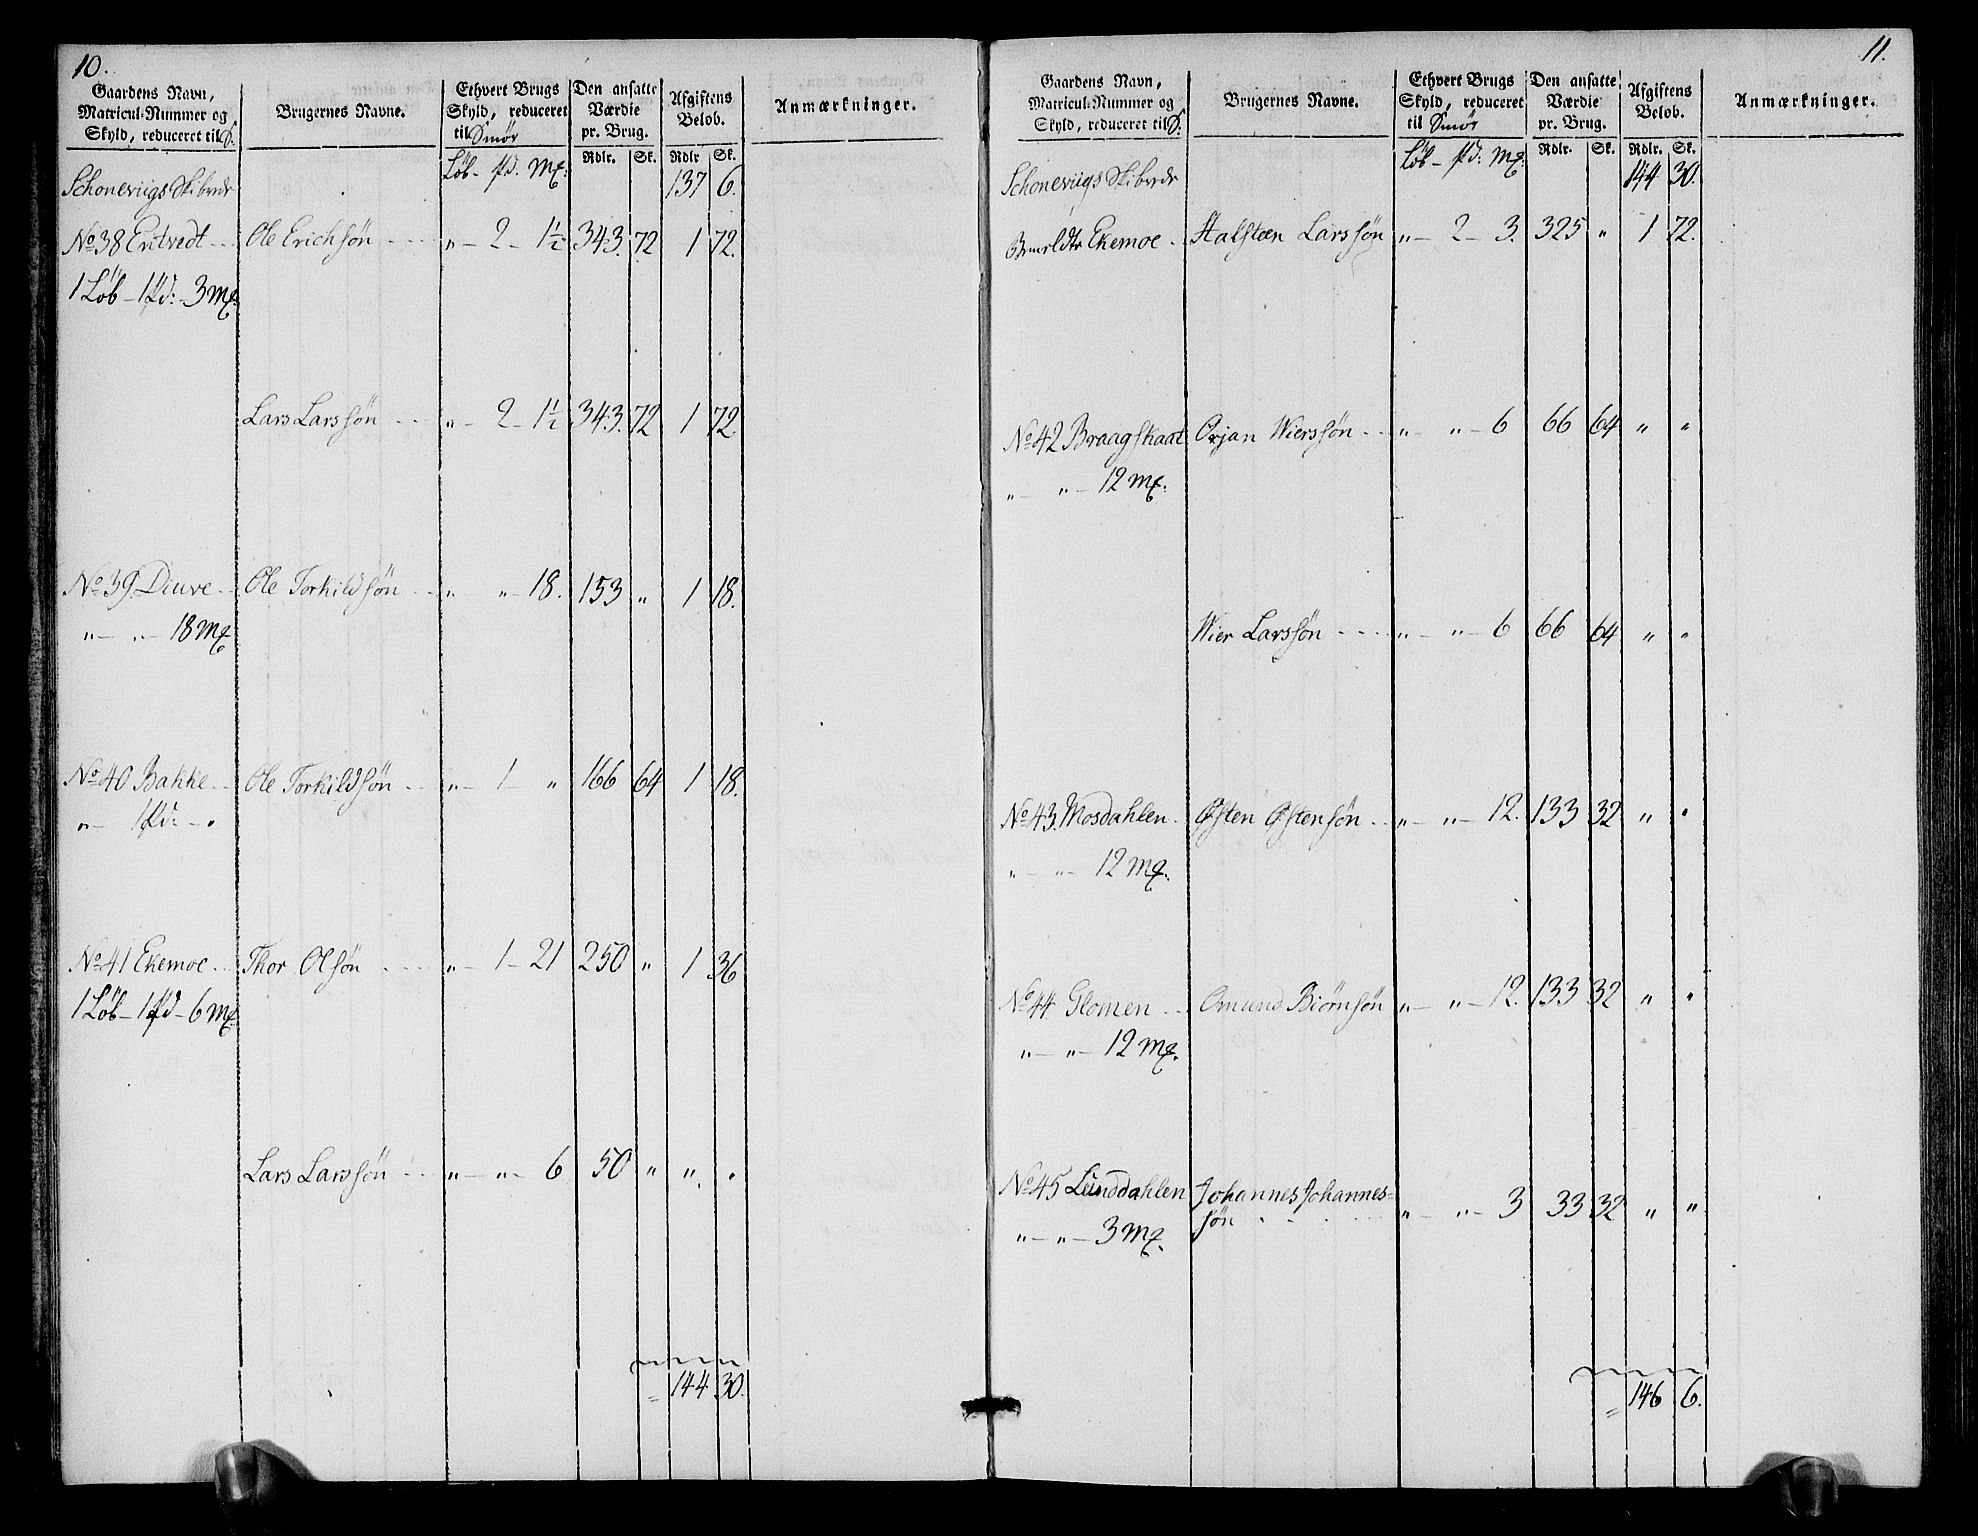 10.
Gaardens Navn,
Matricul-Nummer og
Skyld, reduceret til S.
Brugernes Navne.
Ethvert Brugs
Skyld, reduceret
til Smör
Den ansatte
Værdie
pr. Brug.
Afgiftens
Belob.
Anmærkninger.
Rdlr. Sk. Rdlr Sk.
Schoneviigs Skibrdr Löb - Pd. Mk: 137 6.
No 38 Ertvedt Ole Erichsøn „ - 2 - 1½ 343. 72 1 72.
1 Löb - 1 Pd: - 3 Mk.
Lars Larssøn „ - 2 - 1½ 343. 72 1 72.
No 39. Diuve Ole Torkildsøn „ „ - 18. 153 „ 1 18.
„ - „ - 18 Mk
No 40 Bakke Ole Torkildsøn „ - 1 - „ 166 64 1 18.
„ - 1 Pd: - „
No 41 Ekemoe Thor Olsøn „ - 1 - 21 250 „ 1 36
1 Löb - 1 Pd - 6 Mk.
Lars Larssøn „ - „ - 6 50 „ „ „
144 30.
11.
Gaardens Navn,
Matricul-Nummer og
Skyld, reduceret til S.
Brugernes Navne.
Ethvert Brugs
Skyld, reduceret
til Smör
Den ansatte
Værdie
pr. Brug.
Afgiftens
Belob.
Anmærkninger.
Rdlr. Sk. Rdlr. Sk.
Schoneviigs Skibrdr Löb - Pd: Mk: 144 30.
Ekemoe Halsteen Larssøn „ - 2 - 3. 325 „ 1 72.
No 42 Braagskaat Orjan Wierssøn „ - „ - 6 66 64 „ „
„ - „ - 12 Mk.
Wier Larssøn „ - „ - 6 66 64 „ „
No 43. Mosdahlen Østen Østensøn „ - „ - 12. 133 32 „ „
„ - „ - 12 Mk.
No 44 Glomen Omund Biørnsøn „ - „ - 12. 133 32 „ „
„ - „ - 12 Mk.
No 45 Lunddahlen Johannes Johannes=
søn „ - „ - 3 33 32 „ „
„ - „ - 3 Mk.
146 6.